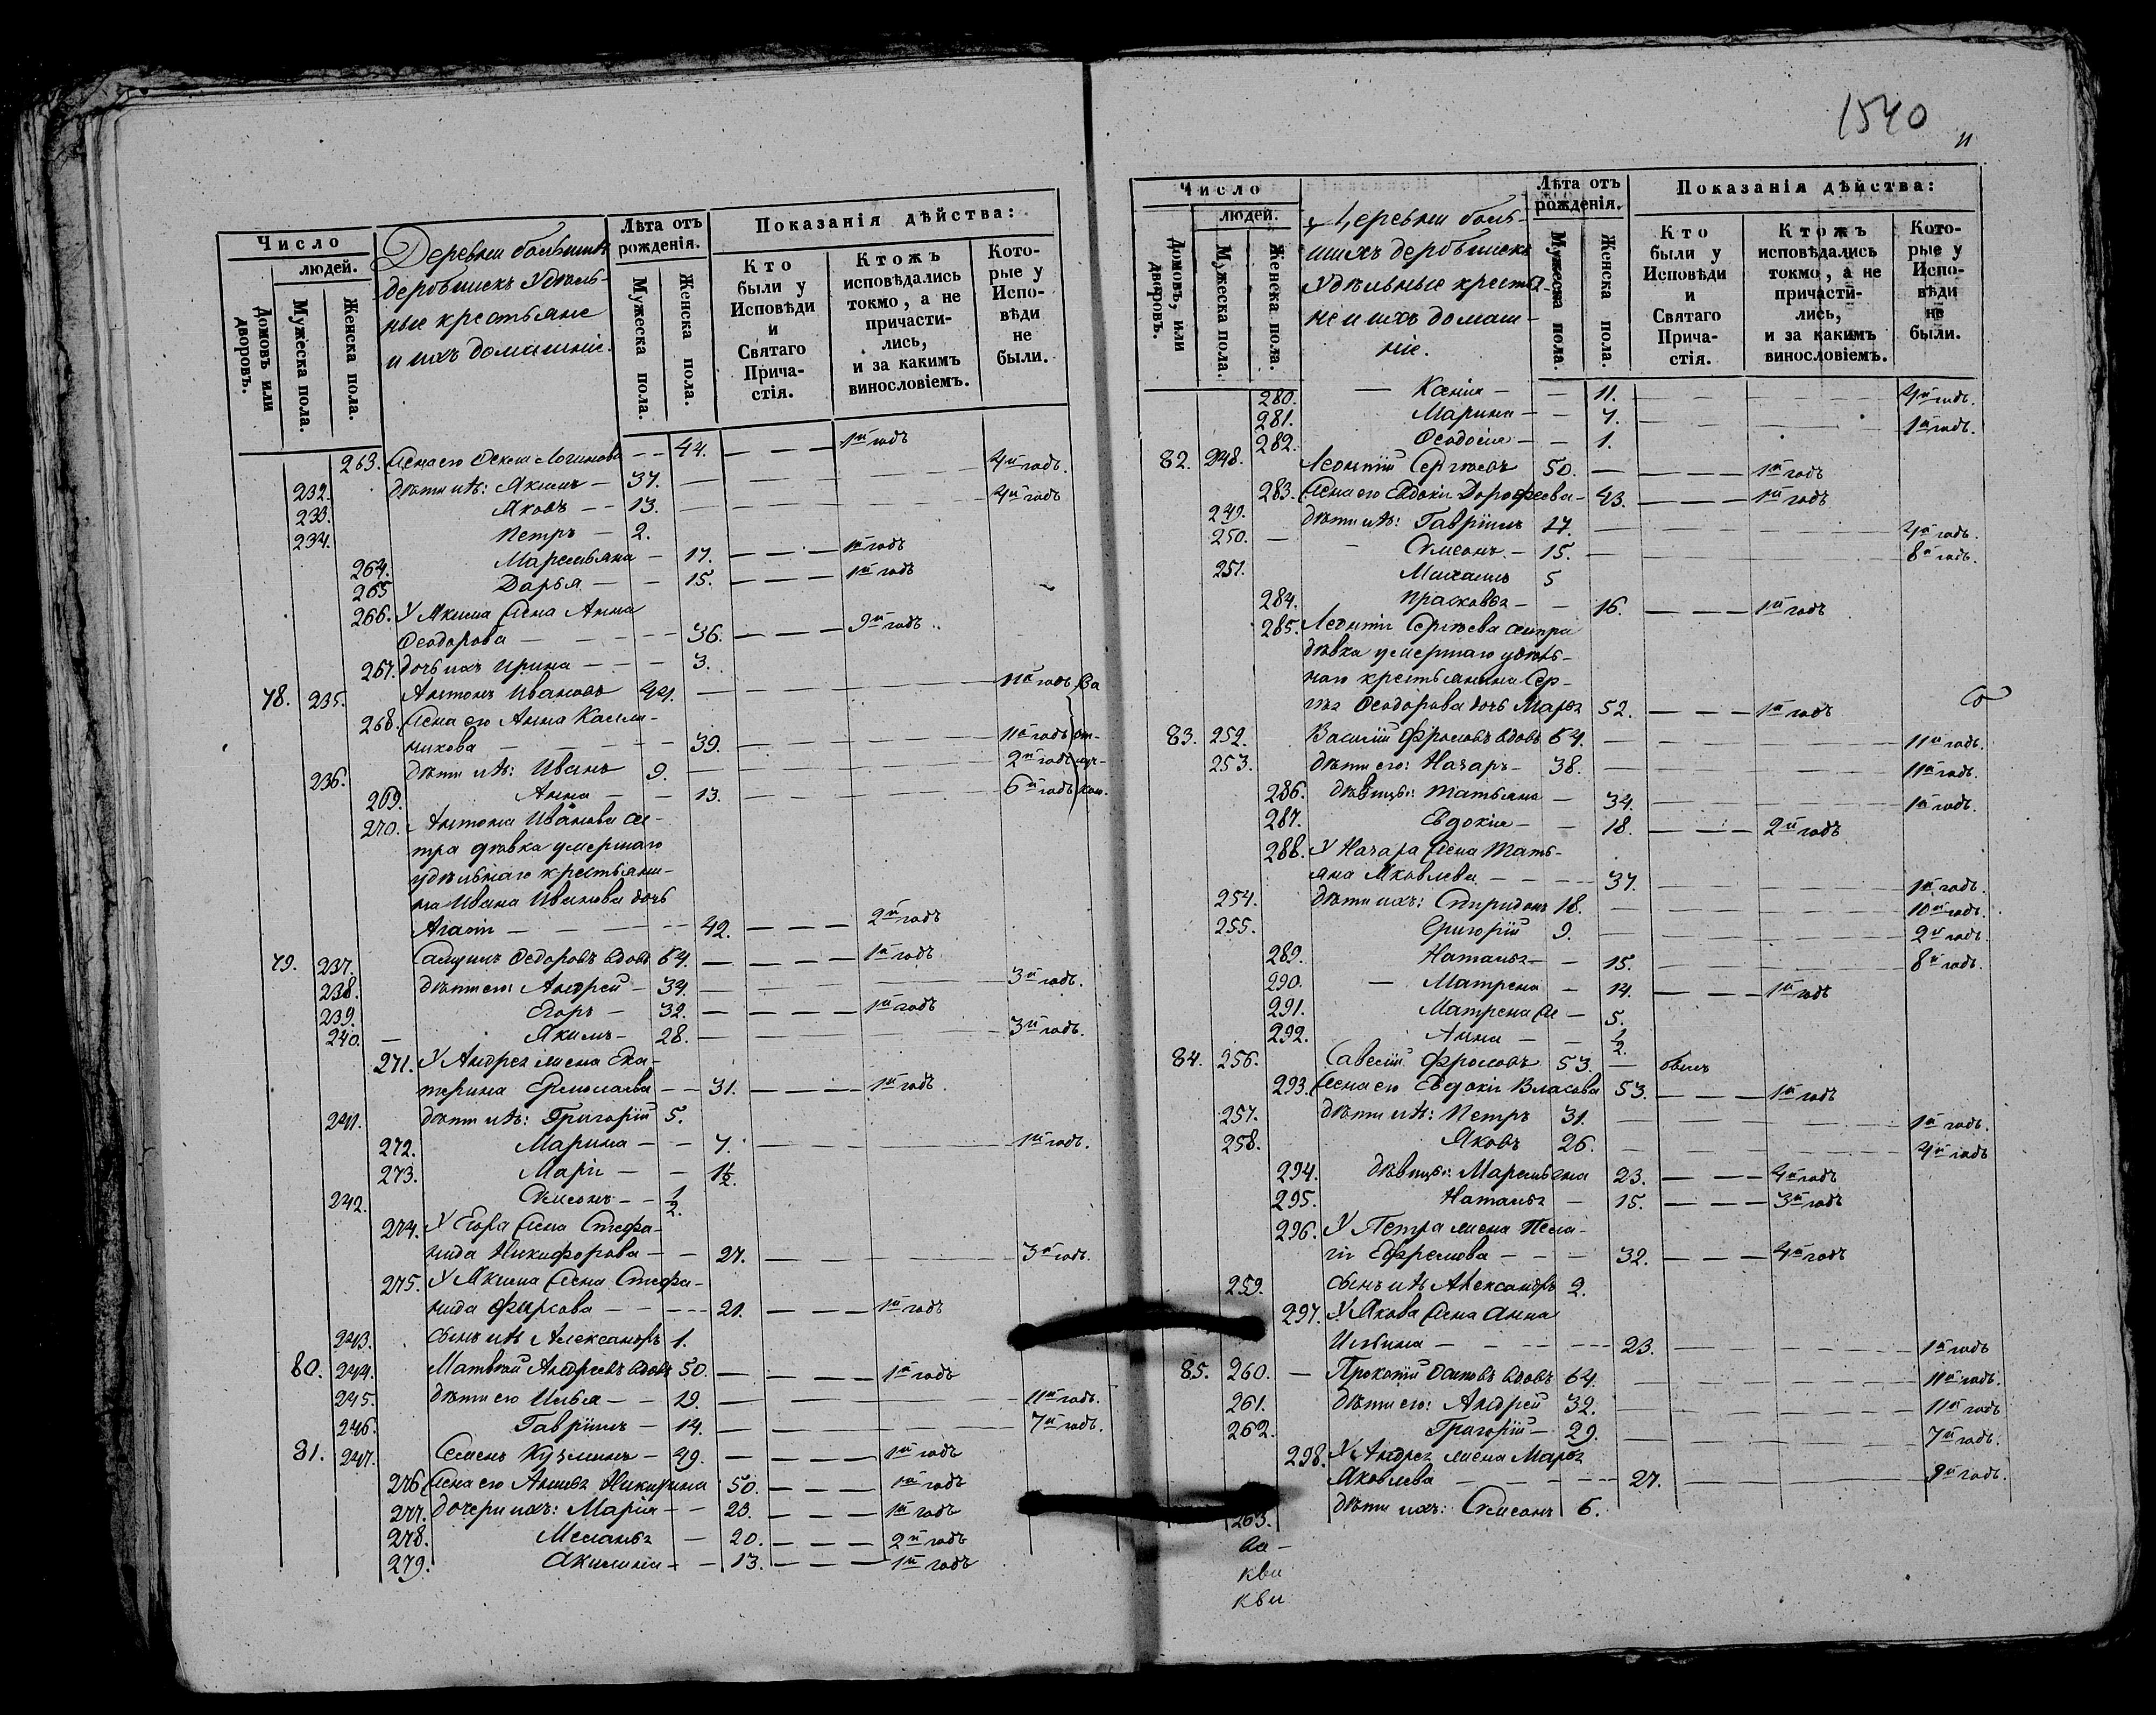 Число
людей.
Домовъ или дворовъ.
Мужеска пола.
Женска пола.
Деревни большихъ
дербышекъ Удѣль-
ные крестьяне
и ихъ домашніе.
Лѣта отъ рожденія.
Мужеска пола.
Женска пола.
Показанія дѣйства:
Кто были у Исповѣди и Святаго Прича-стія.
Ктожъ исповѣдались токмо, а не причасти-лись, и за какимъ винословіемъ.
Кото-рые у Испо-вѣди не были.
263. Жена его Логинова — — 44. — — — 1й годъ
232. дѣти ихъ: Якимъ — 37. — — — 4й годъ.
233. Яковъ — — 13. — — — 4й годъ
234. Петръ — 2.
264. Маремьяна — 17. — — — 1й годъ
265 Дарья — — 15. — — — 1й годъ
266. У Якима жена Анна
Ѳеодорова — — — 36. — — — 9й годъ
267. дочь ихъ Ирина — — — 3.
78. 235. Антонъ Ивановъ 44. — — — 11й годъ За
268. Жена его Анна Калли-
никова — — — 39. — — — 11й годъ от-
236. дѣти ихъ: Иванъ 9. — — — 2й годъ луч-
269. Анна — — 13. — — — 6й годъ кою.
270. Антона Иванова сес-
тра дѣвка умершаго
удѣльнаго крестьяни-
на Ивана Иванова дочь
Агаѳія — — — 42. — — — 2й годъ
79. 237. Ѳедоровъ вдовъ 64. — — — 1й годъ
238. дѣти его: Андрей — 34. — — — 3й годъ.
239. Егоръ — 32. — — — 1й годъ
240. — Якимъ — 28. — — — 3й годъ.
271. У Андрея жена Ека-
терина Ермолаева — — 31. — — — 1й годъ.
241. дѣти ихъ: Григорій 5.
272. Марина — — 7. — — — 1й годъ.
273. Марія — — 1½.
242. Симеонъ — — ½.
274. У Егора жена Стефа-
нида Никифорова — — 27. — — — 3й годъ.
275. У Якима жена Стефа-
нида Фирсова — — — 21. — — — 1й годъ
243. сынъ ихъ Александръ 1.
80. 244. Матвѣй Андреевъ вдовъ 50. — — — 1й годъ
245. дѣти его Илья — — 19. — — — 11й годъ.
246. Гавріилъ — 14. — — — 7й годъ.
81. 247. Семенъ Кузминъ — 49. — — — 1й годъ
276 Жена его Никитина 50. — — — 1й годъ
277. дочери ихъ: Марія — — 23. — — — 1й годъ
278. Меланья — 20. — — — 2й годъ
279. Акилина — — 13. — — — 1й годъ
1540
Число
людей.
Домовъ, или дворовъ.
Мужеска пола.
Женска пола.
Деревни боль-
шихъ дербышекъ
Удѣльные крестья-
не и ихъ домаш-
ніе.
Лѣта отъ рожденія.
Мужеска пола.
Женска пола.
Показанія дѣйства:
Кто были у Исповѣди и Святаго Прича-стія.
Ктожъ исповѣдались токмо, а не причасти-лись, и за какимъ винословіемъ.
Кото-рые у Испо-вѣди не были.
280. — Ксенія — — 11. — — — 4й годъ.
281. Марина — — 7. — — — 1й годъ.
282. Ѳеодосія — — 1.
82. 248. Леонтій Сергѣевъ 50. — — — 1й годъ
283. Жена его Евдокія Дорофеева — 43. — — — 1й годъ
249. дѣти ихъ: Гавріилъ 17. — — — 4й годъ.
250. — — Симеонъ — 15. — — — 8й годъ.
251. Михаилъ 5
284. Прасковья — — 16. — — — 1й годъ
285. Леонтія Сергѣева сестра
дѣвка умершаго удѣль-
наго крестьянина Сер-
гѣя Ѳеодорова дочь Марья 52. — — — 1й годъ
83. 252. Василій Фроловъ вдовъ 64. — — — 11й годъ.
253. дѣти его: Назаръ — 38. — — — 11й годъ.
286. дѣвицы: Татьяна — 34. — — — 1й годъ.
287. Евдокія — — 18. — — — 2й годъ
288. У Назара жена Тать-
яна Яковлева — — — 37. — — — 1й годъ.
254. дѣти ихъ: Спиридонъ 18. — — — 10й годъ.
255. Григорій 9. — — — 2й годъ.
289. Наталья — — 15. — — — 8й годъ.
290. — Матрена — 14. — — — 1й годъ
291. Матрена же — 5.
292. Анна — — ½.
84. 256. Савелій Фроловъ 53. — былъ
293. Жена его Евдокія Власова 53. — — — 1й годъ
257. дѣти ихъ: Петръ 31. — — — 1й годъ.
258. Яковъ 26. — — — 4й годъ
294. дѣвицы: Маремьяна 23. — — — 4й годъ
295. Наталья — 15. — — — 3й годъ
296. У Петра жена Пела-
гія Ефремова — — — 32. — — — 4й годъ
259. сынъ ихъ Александръ 2.
297. У Якова жена Анна
Ильина — — — 23. — — — 1й годъ
85. 260. — Прокопій Осиповъ вдовъ 64. — — — 11й годъ.
261. дѣти его: Андрей 32. — — — 11й годъ
262. Григорій — 29. — — — 7й годъ.
298. У Андрея жена Марья
Яковлева — — — 27. — — — 9й годъ.
263. дѣти ихъ: Симеонъ 6.